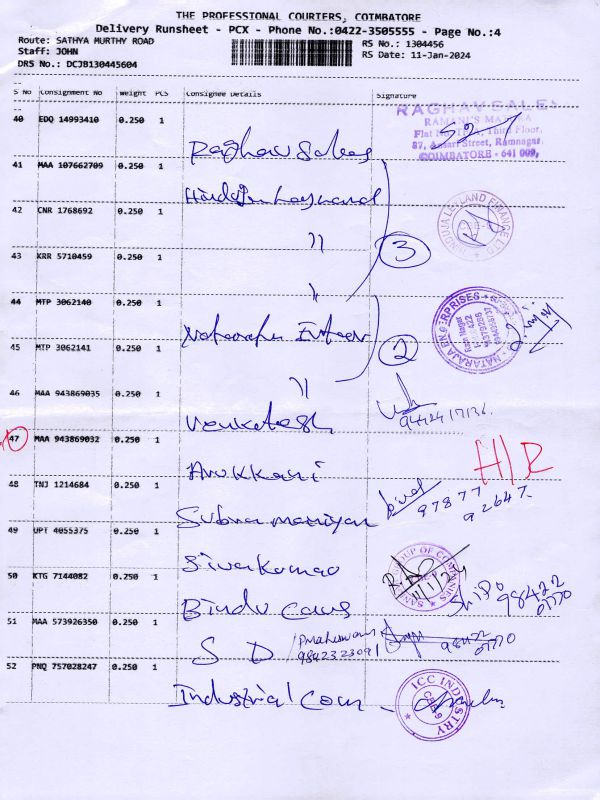 THE PROFESSIONAL COURIERS, COIMBATORE
Delivery Runsheet - PCX - Phone No.:0422-3505555 - Page No.:4
Route: SATHYA MURTHY ROAD
RS No.: 1304456
Staff: JOHN
RS Date: 11-Jan-2024
DRS No.: DCJB130445604
S No Consignment No Weight PCS Consignee Details Signature
40 EDQ 14993410 0.250 1
RAGHAV SALES
Third Floor,
87, Ansari Street, Ramnagar,
COIMBATORE - 641 009,
Raghav Sales
41 MAA 107662709 0.250 1
42 CNR 1768692 0.250 1
"
3
43 KRR 5710459 0.250 1
"
44 MTP 3062140 0.250 1
NATARAJA ENTERPRISES
45 MTP 3062141 0.250 1
2
"
46 MAA 943869035 0.250 1
Venkatesh
47 MAA 943869032 0.250 1
H/R
Arukkani
48 TNJ 1214684 0.250 1
97877
92647
Subramaniyan
49 UPT 4055375 0.250 1
Sivakumar
GROUP OF COMPANIES
11/1/24
50 KTG 7144082 0.250 1
98422
07770
Bindu Cons
51 MAA 573926350 0.250 1
S D
9842323091
98422
07770
52 PNQ 757028247 0.250 1
ICC INDUSTRY
CBE-9
Industrial Com -